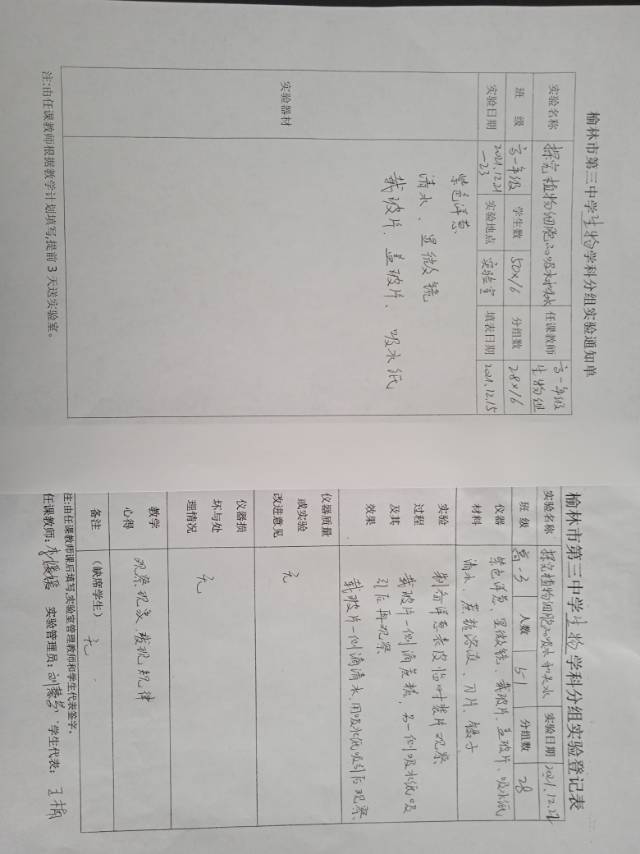 榆林市第三中学生物学科分组实验通知单
实验名称 探究植物细胞的吸水和失水 任课教师 高一年级生物组
班 级 高一年级 学生数 50×16 分组数 28×16
实验日期 2021.12.21—23 实验地点 实验室 填表日期 2021.12.15
实验器材
紫色洋葱
清水、显微镜
载玻片、盖玻片、吸水纸
注:由任课教师根据教学计划填写,提前 3 天送实验室。
榆林市第三中学生物学科分组实验登记表
实验名称 探究植物细胞的吸水和失水 实验日期 2021.12.22
班 级 高一3 人数 51 分组数 28
仪器材料 紫色洋葱、显微镜、载玻片、盖玻片、吸水纸
清水、蔗糖溶液、刀片、镊子
实验过程及其效果 制作洋葱表皮临时装片观察
载玻片一侧滴蔗糖,另一侧吸水纸吸
引后再观察
载玻片一侧滴清水,用吸水纸吸引后观察
仪器质量或实验改进意见 无
仪器损坏与处理情况 无
教学心得 观察现象 发现规律
备注 (缺席学生) 无
注:由任课教师课后填写,实验室管理教师和学生代表签字。
任课教师: 实验管理员: 学生代表: